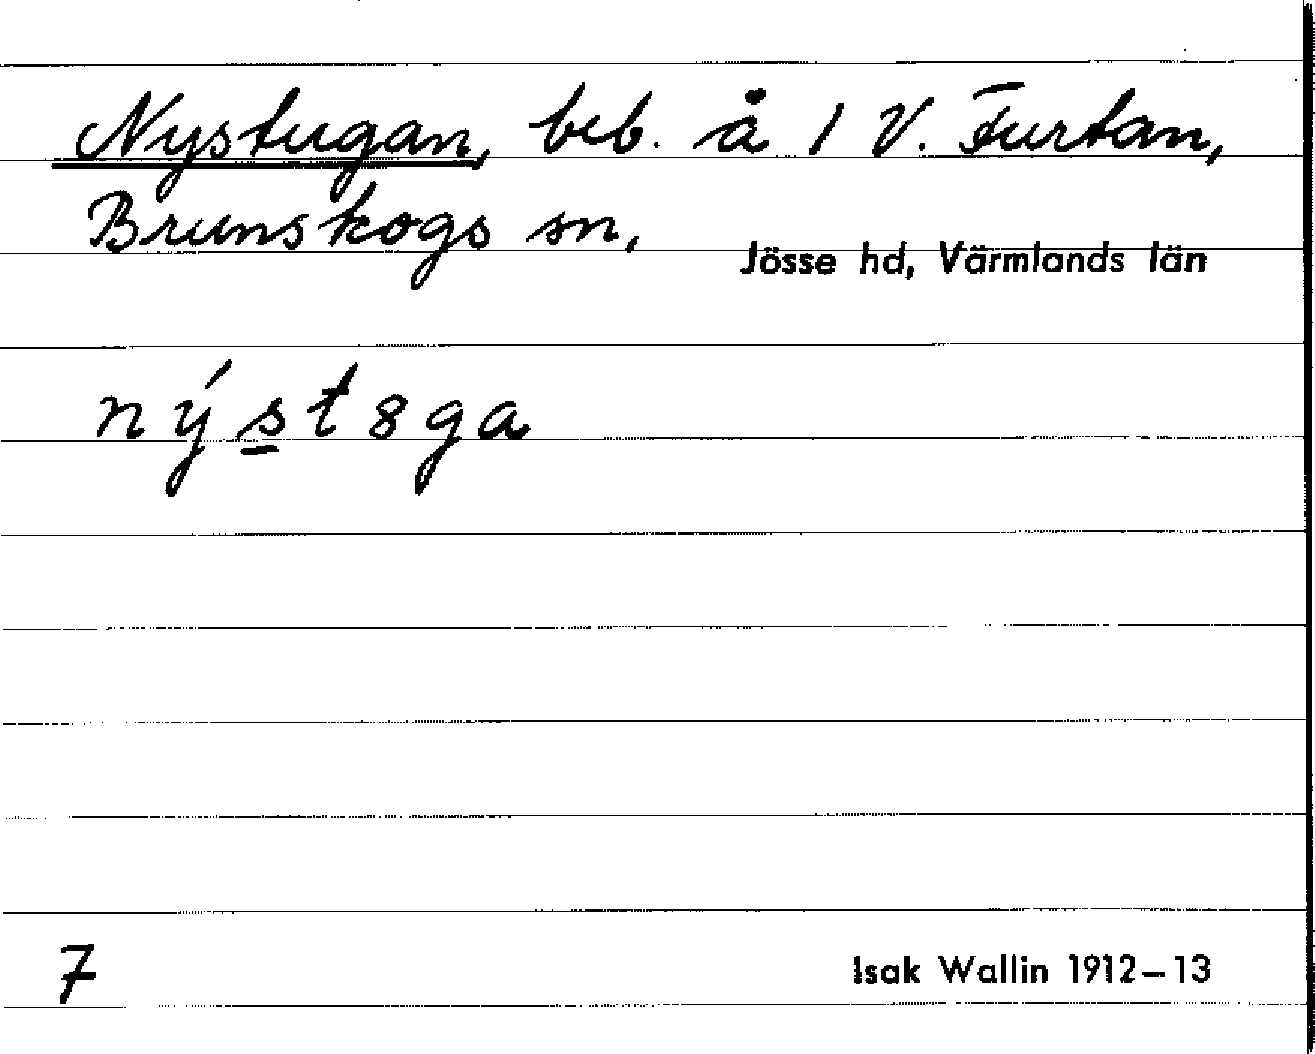 Nystugan, beb. å 1 V. Furtan,
Brunskogs sn,
Jösse hd, Värmlands län
nýst8ga
7
Isak Wallin 1912–13